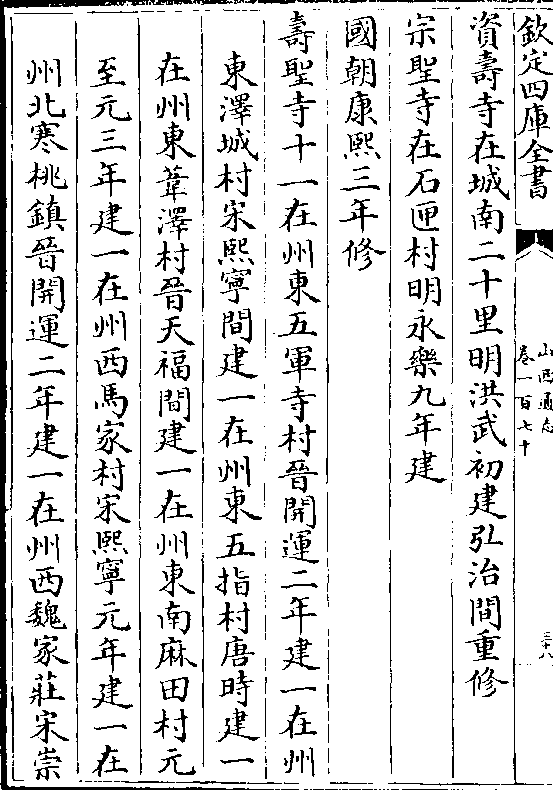 欽定四庫全書
山西通志
卷一百七十
三十八
資壽寺在城南二十里明洪武初建弘治間重修
宗聖寺在石匣村明永樂九年建
國朝康熙三年修
壽聖寺十一在州東五軍寺村晉開運二年建一在州
東澤城村宋熙寧間建一在州東五指村唐時建一
在州東葦澤村晉天福間建一在州東南麻田村元
至元三年建一在州西馬家村宋熙寧元年建一在
州北寒桃鎮晉開運二年建一在州西魏家莊宋崇